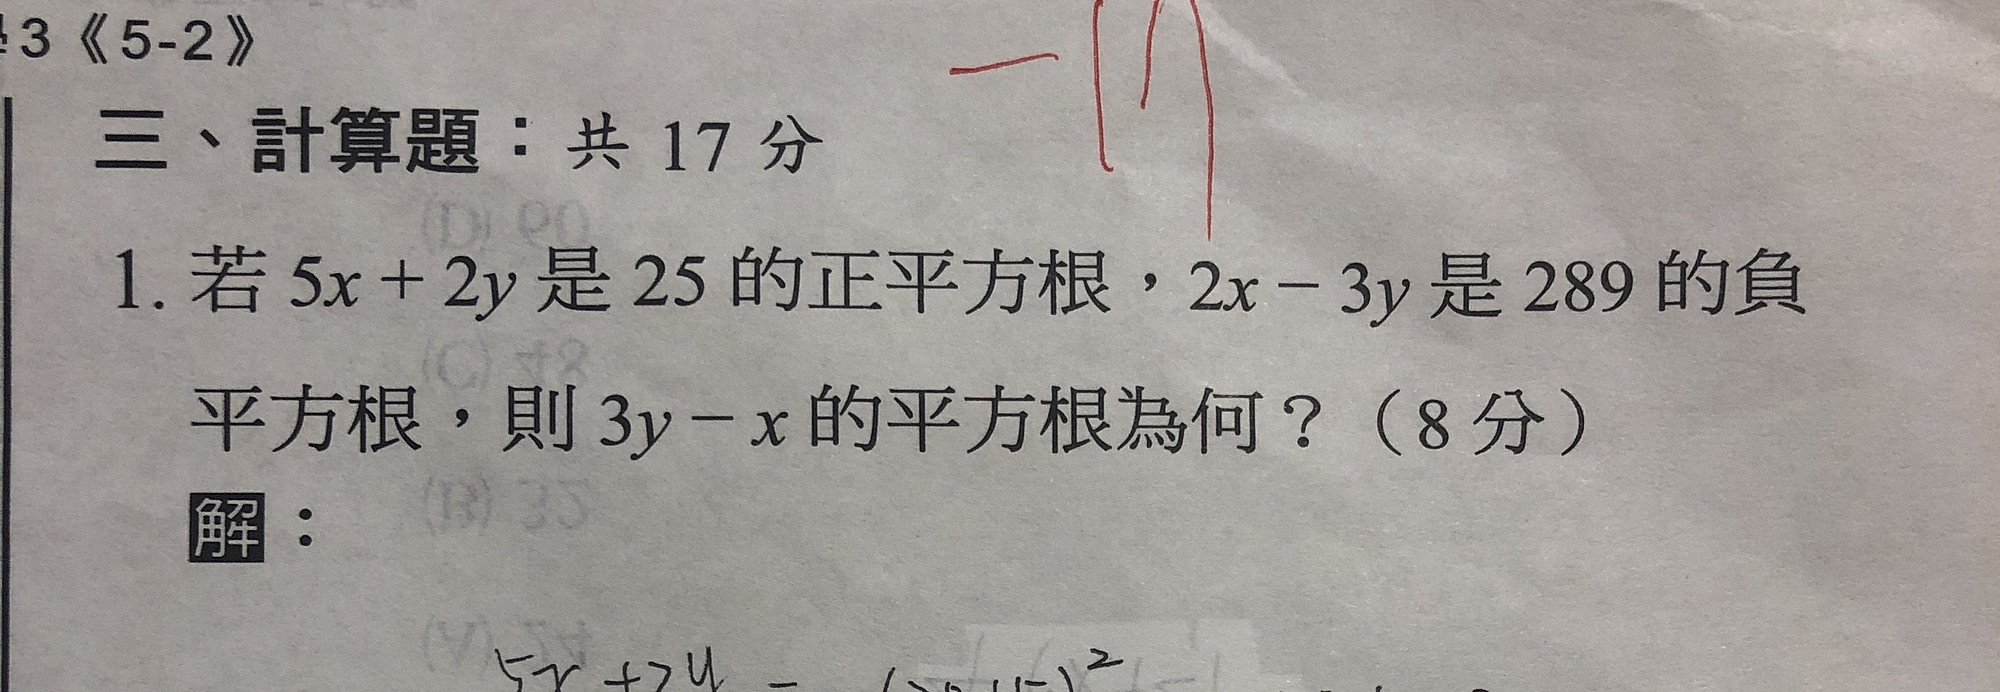 3《5-2》
三、計算題：共 17 分
1. 若 5x + 2y 是 25 的正平方根，2x − 3y 是 289 的負
平方根，則 3y − x 的平方根為何？（8 分）
解：
5x+2y